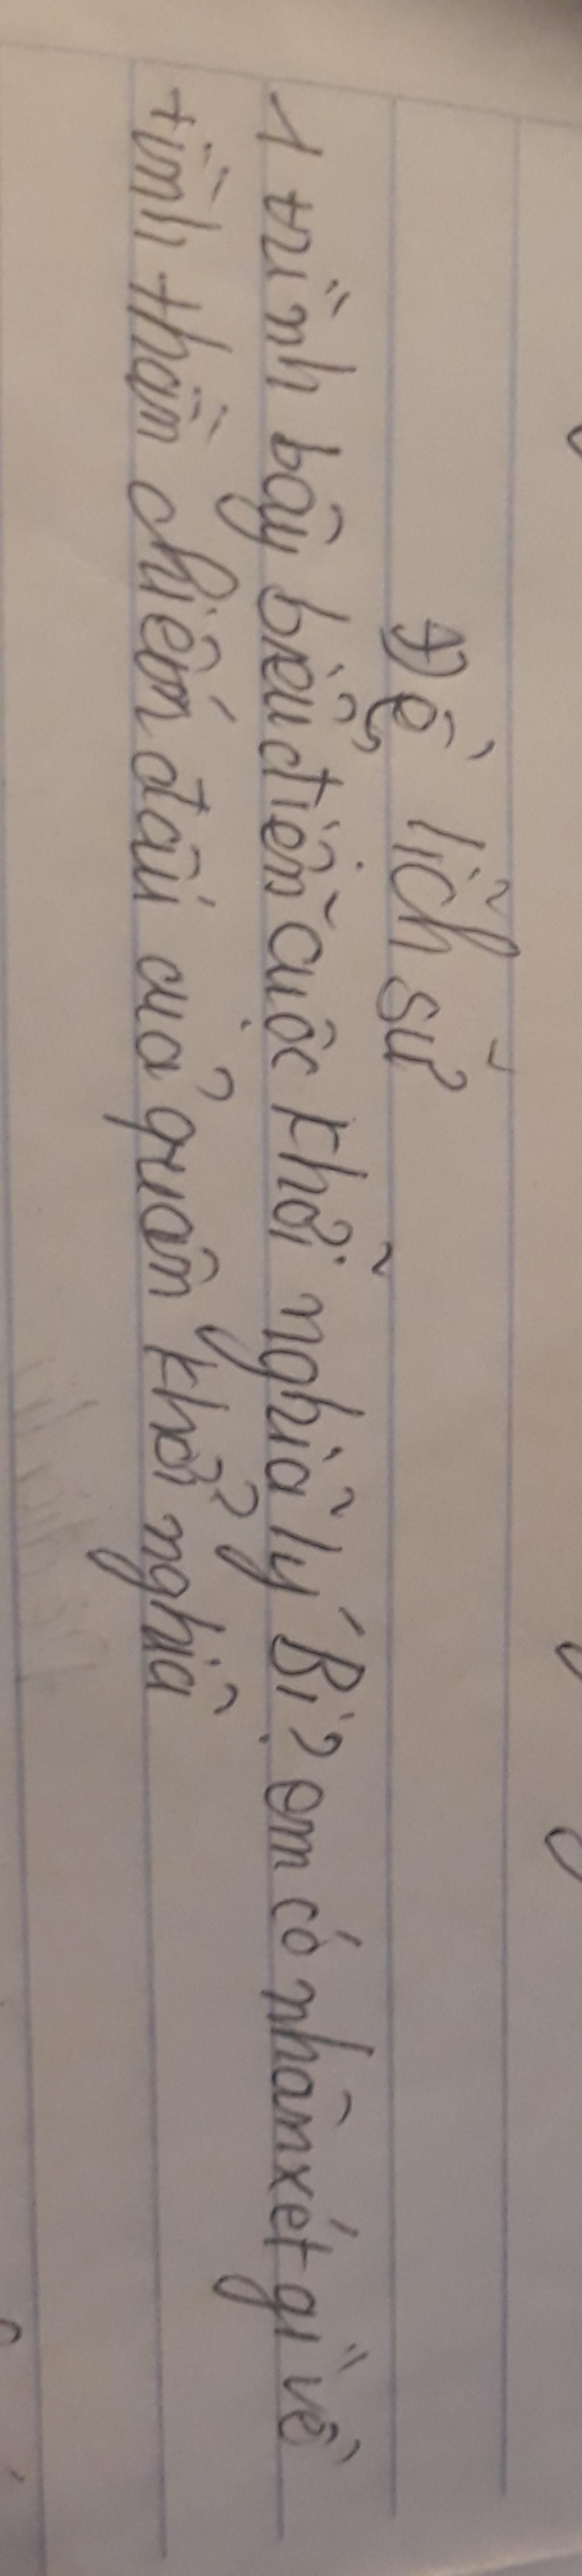 Đề lịch sử
1 trình bây biểu điễn cuộc khởi nghĩa lý Bí? em có nhânxét gì về
tình thần chiêm đấu của quân khởi nghĩa